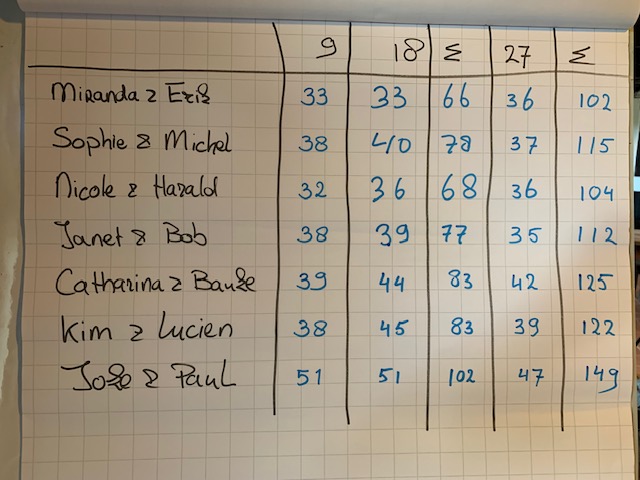 9 18 Σ 27 Σ
Miranda & Erik 33 33 66 36 102
Sophie & Michel 38 40 78 37 115
Nicole & Harald 32 36 68 36 104
Janet & Bob 38 39 77 35 112
Catharina & Bauke 39 44 83 42 125
Kim & Lucien 38 45 83 39 122
Joke & Paul 51 51 102 47 149